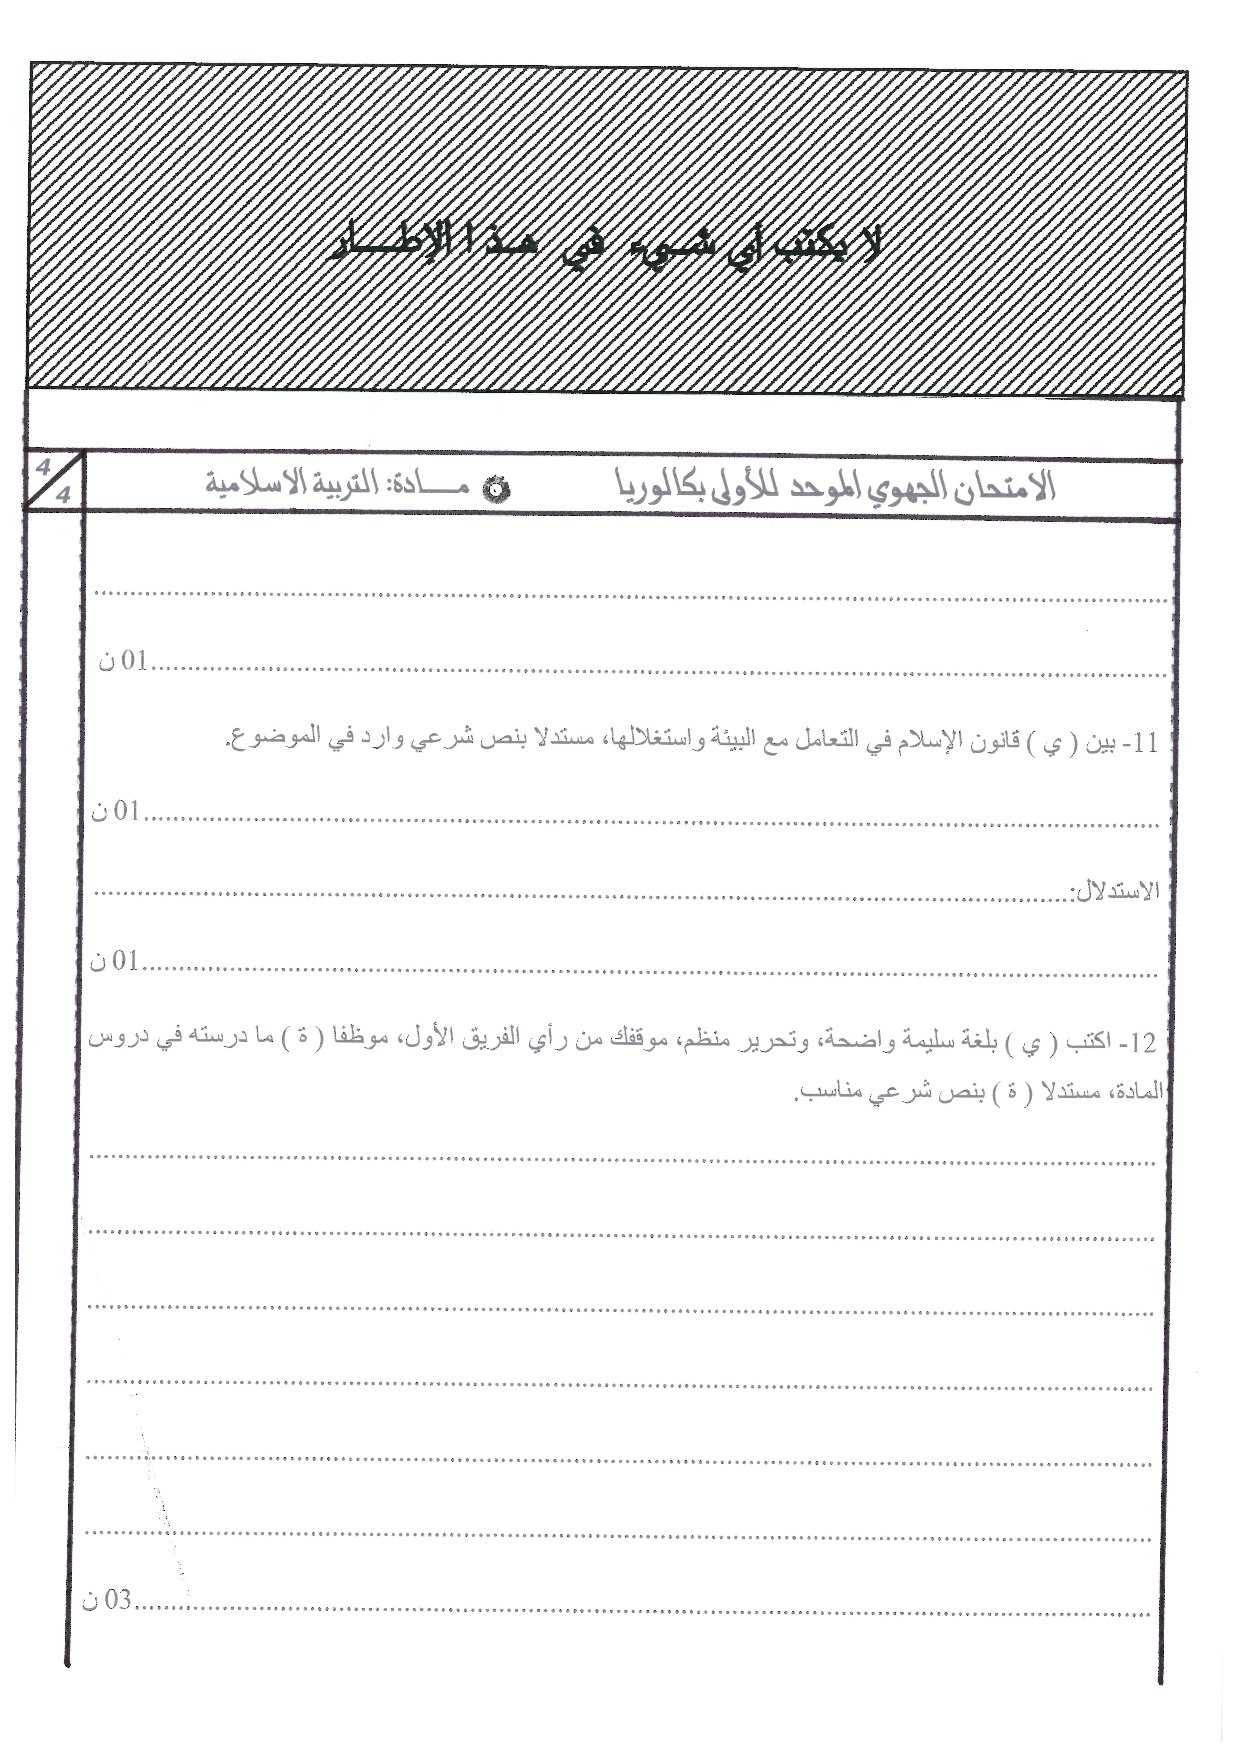 لا يكتب أي شيء في هذا الإطار
الامتحان الجهوي الموحد للأولى بكالوريا مادة: التربية الاسلامية
4/4
........................................
........................................01 ن
11- بين ( ي ) قانون الإسلام في التعامل مع البيئة واستغلالها، مستدلا بنص شرعي وارد في الموضوع.
........................................01 ن
الاستدلال:........................................
........................................01 ن
12- اكتب ( ي ) بلغة سليمة واضحة، وتحرير منظم، موقفك من رأي الفريق الأول، موظفا ( ة ) ما درسته في دروس
المادة، مستدلا ( ة ) بنص شرعي مناسب.
........................................
........................................
........................................
........................................
........................................
........................................
........................................03 ن